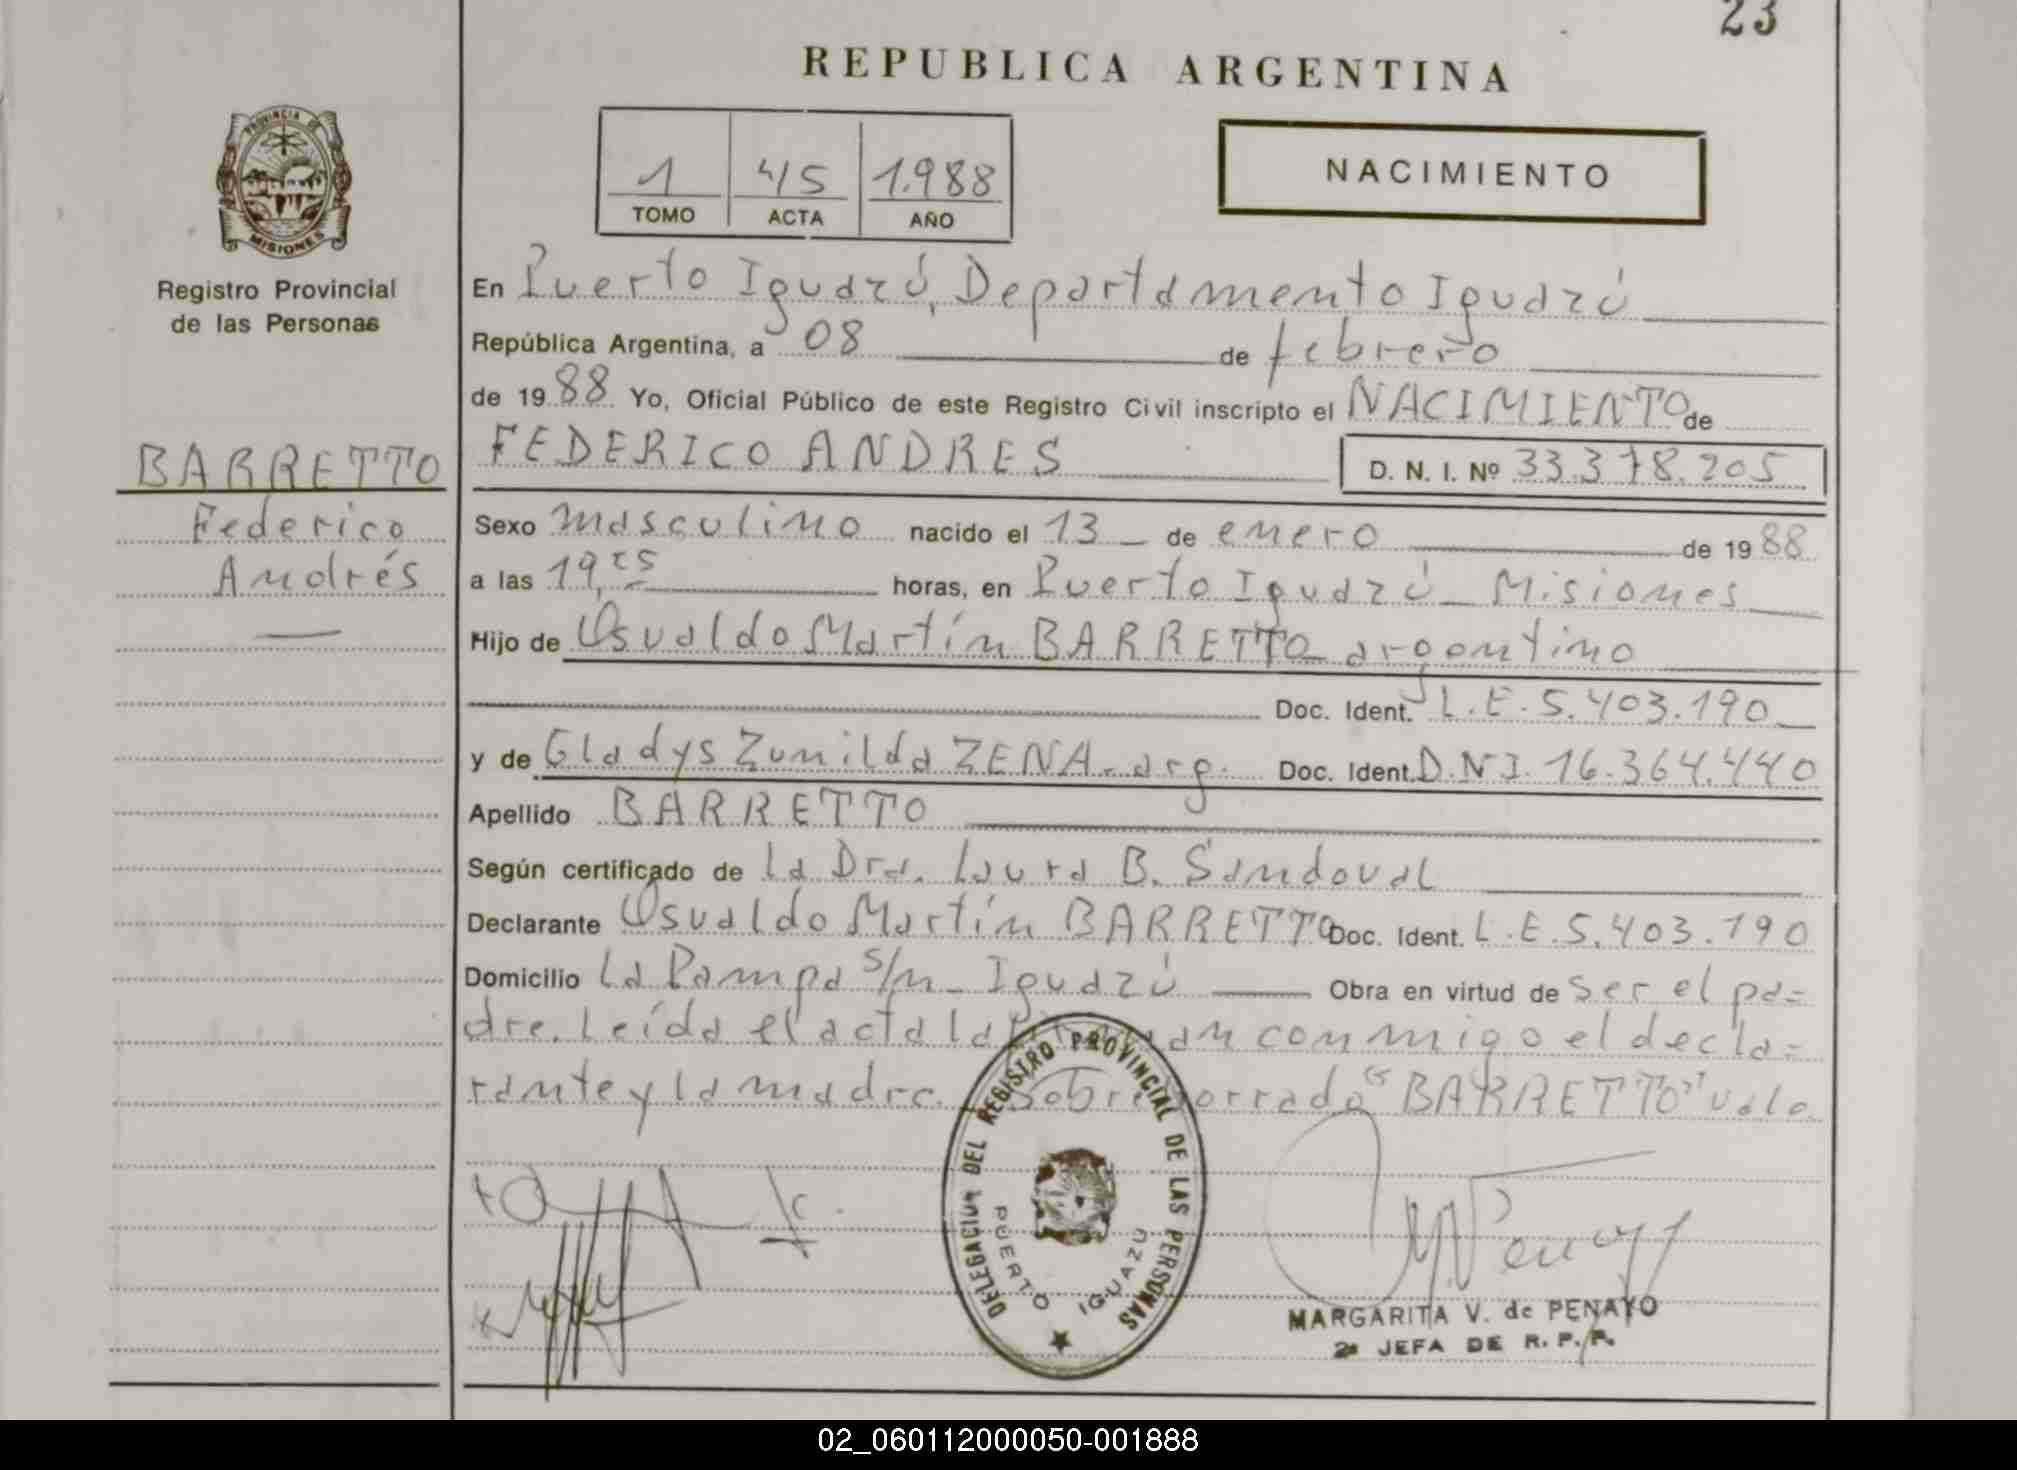 23
REPUBLICA ARGENTINA
PROVINCIA DE
MISIONES
1 45 1.988
TOMO ACTA AÑO
NACIMIENTO
Registro Provincial
de las Personas
BARRETTO
Federico
Andrés
En Puerto Iguazú, Departamento Iguazú
República Argentina, a 08 de febrero
de 1988 Yo, Oficial Público de este Registro Civil inscripto el NACIMIENTO de
FEDERICO ANDRES D. N. I. Nº 33.378.205
Sexo masculino nacido el 13 de enero de 1988
a las 19, horas, en Puerto Iguazú - Misiones
Hijo de Osvaldo Martín BARRETTO argentino
Doc. Ident. L.E. 5.403.190
y de Gladys Zunilda ZENA - arg. Doc. Ident. D.N.I. 16.364.440
Apellido BARRETTO
Según certificado de la Dra. Laura B. Sandoval
Declarante Osvaldo Martín BARRETTO Doc. Ident. L.E. 5.403.190
Domicilio La Pampa s/n - Iguazú Obra en virtud de ser el pa=
dre. Leída el acta la conmigo el decla=
rante y la madre. Sobreborrado "BARRETTO" vale
DELEGACION DEL REGISTRO PROVINCIAL DE LAS PERSONAS
PUERTO IGUAZU
MARGARITA V. de PENAYO
2ª JEFA DE R. P. P.
02_060112000050-001888